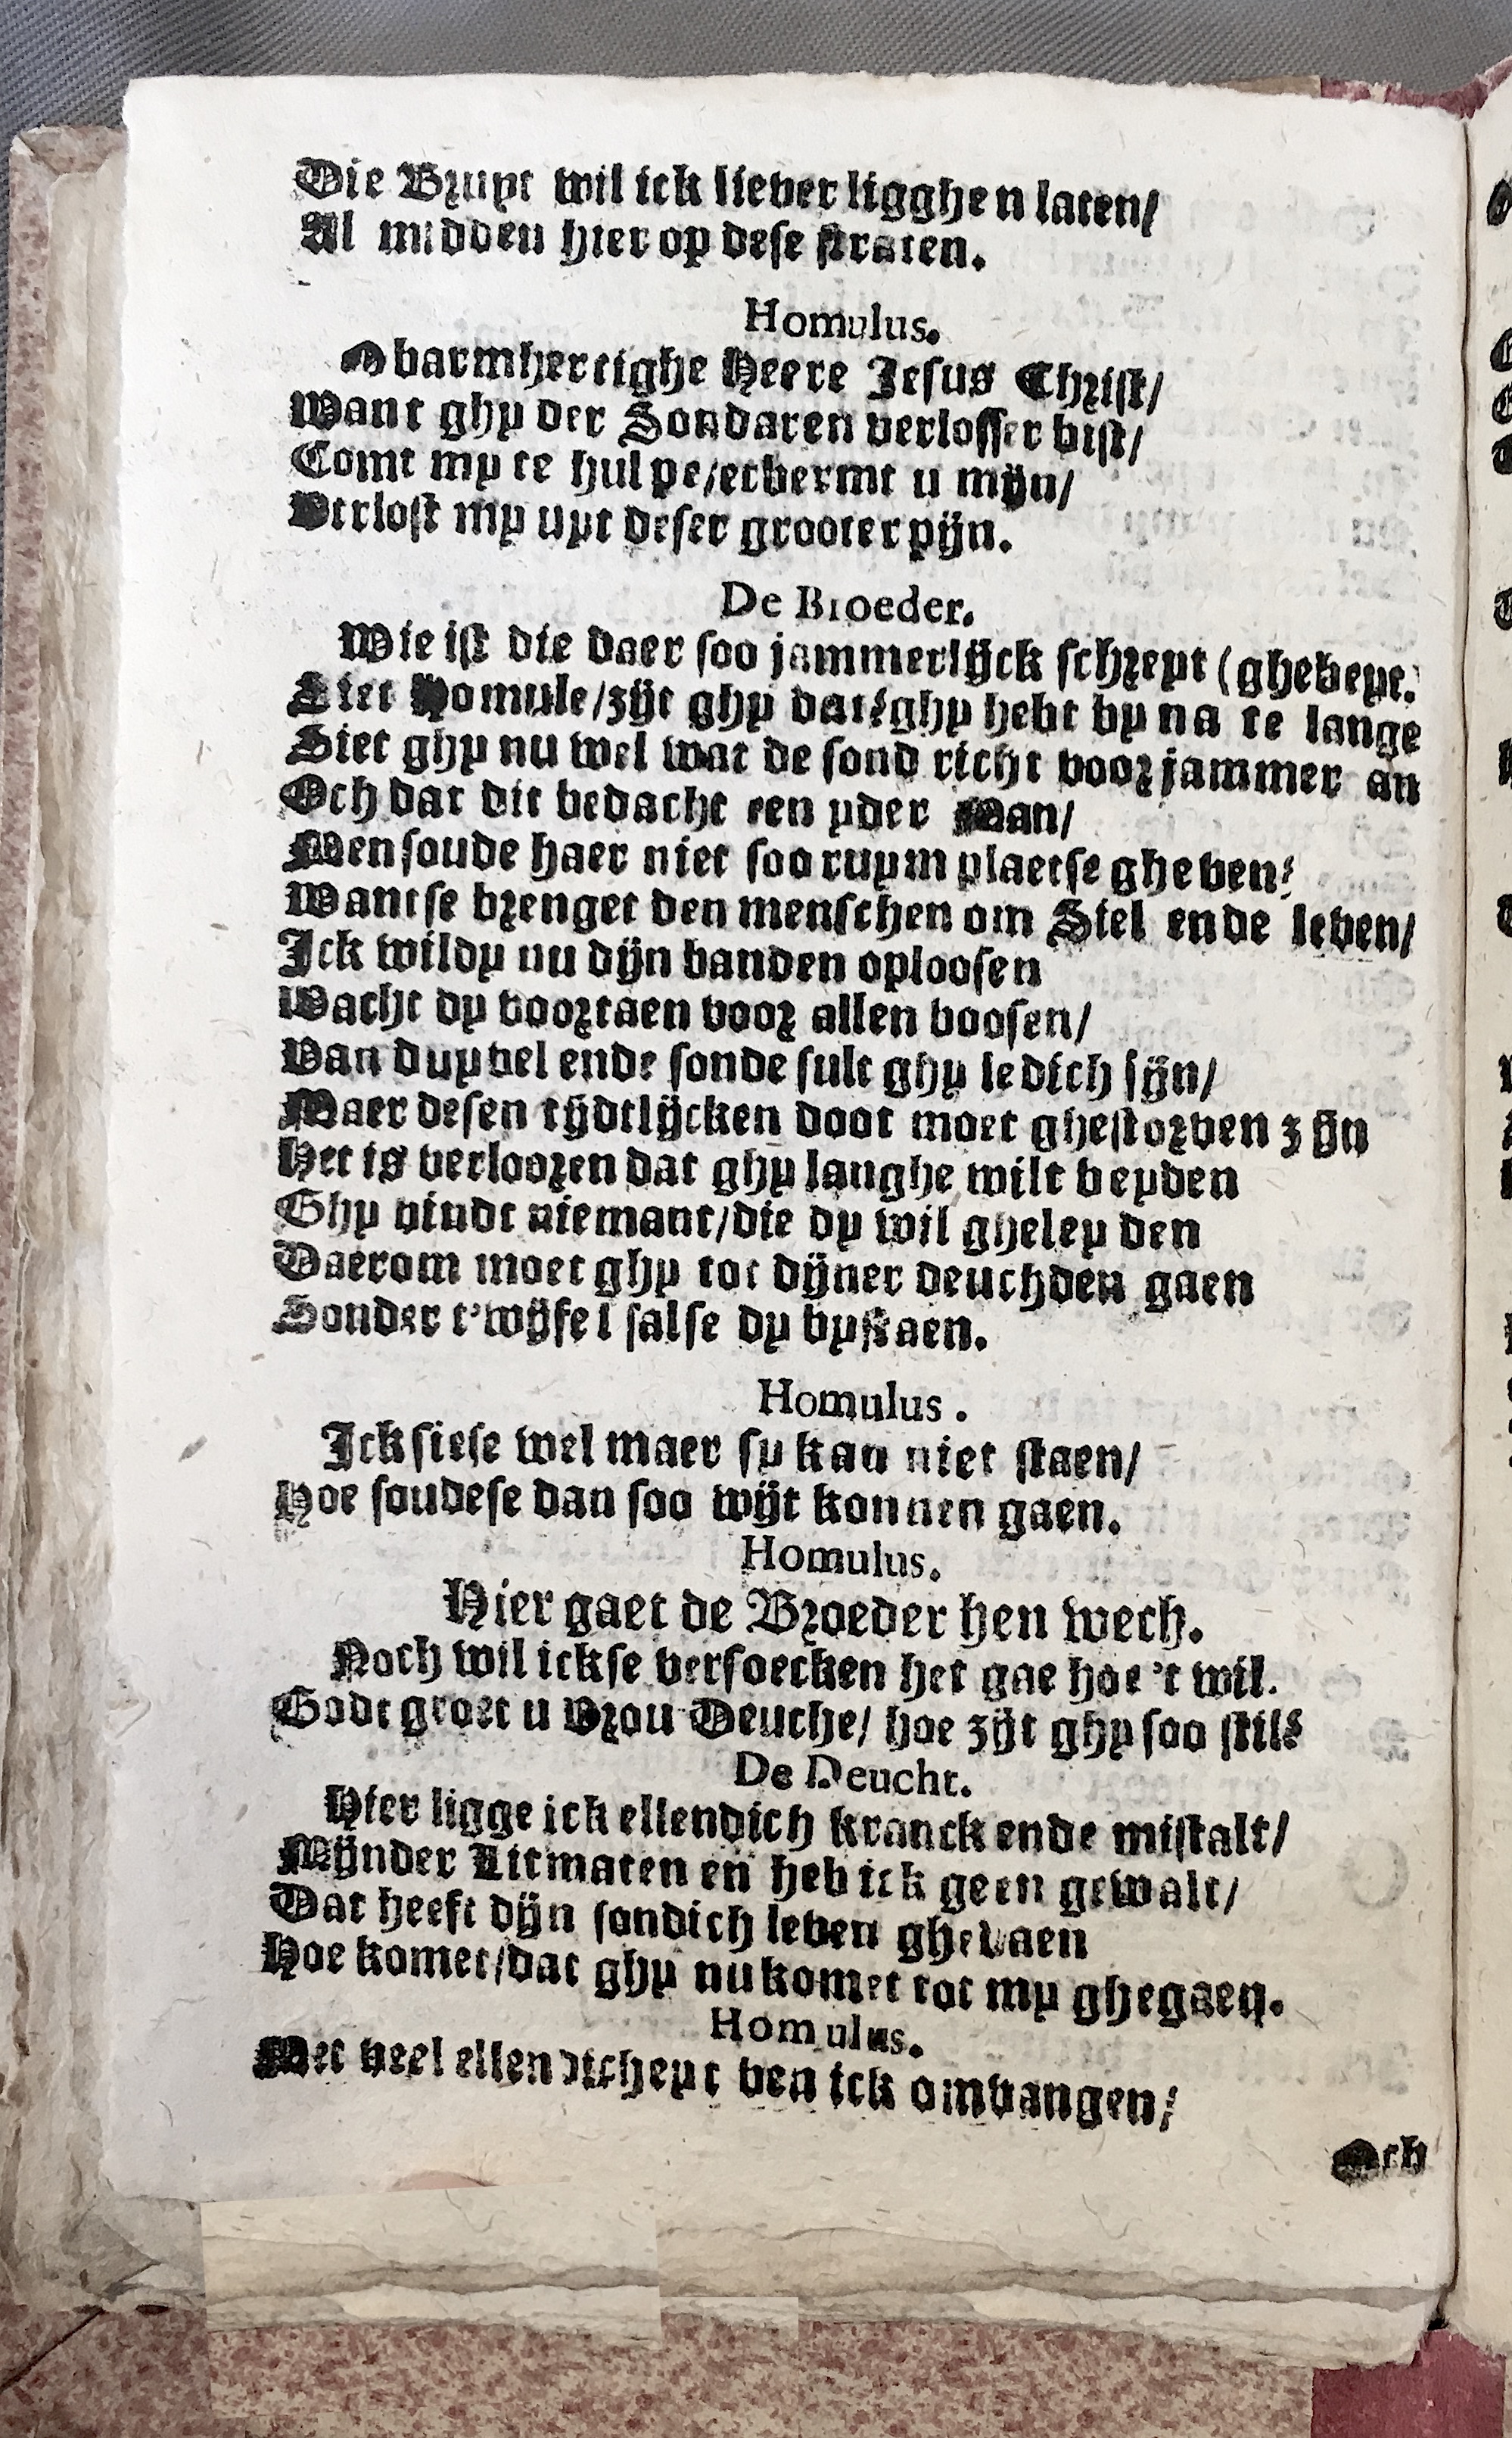 Die Bruyt wil ick liever ligghen laten/
Al midden hier op dese straten.
Homulus.
O barmhertighe Heere Jesus Christ/
Want ghy der Sondaren verlosser bist/
Comt my te hulpe/erbermt u mijn/
Verlost my uyt deser grooter pijn.
De Broeder.
Wie ist die daer soo jammerlijck schreyt (ghebeyt.
Siet Homule/zijt ghy dat? ghy hebt by na te lange
Siet ghy nu wel wat de sond richt voor jammer an
Och dat dit bedacht een yder Man/
Men soude haer niet soo ruym plaetse gheven/
Wantse brenget den menschen om Siel ende leven/
Ick wildy nu dijn banden oploosen
Wacht dy voortaen voor allen boosen/
Van duyvel ende sonde sult ghy ledich sijn/
Maer desen tijdtlijcken doot moet ghestorven zijn
Het is verlooren dat ghy langhe wilt beyden
Ghy vindt niemant/die dy wil gheleyden
Daerom moet ghy tot dijner deuchden gaen
Sonder t'wijfel salse dy bystaen.
Homulus.
Ick siese wel maer sy kan niet staen/
Hoe soudese dan soo wijt konnen gaen.
Homulus.
Hier gaet de Broeder hen wech.
Noch wil ickse versoecken het gae hoe 't wil.
Godt groet u Vrou Deuche/ hoe zijt ghy soo stil?
De Deucht.
Hier ligge ick ellendich kranck ende mistalt/
Mijnder Litmaten en heb ick geen gewalt/
Dat heeft dijn sondich leven ghedaen
Hoe komet/dat ghy nu komet tot my ghegaen.
Homulus.
Met veel ellendicheyt ben ick omvangen/
Och